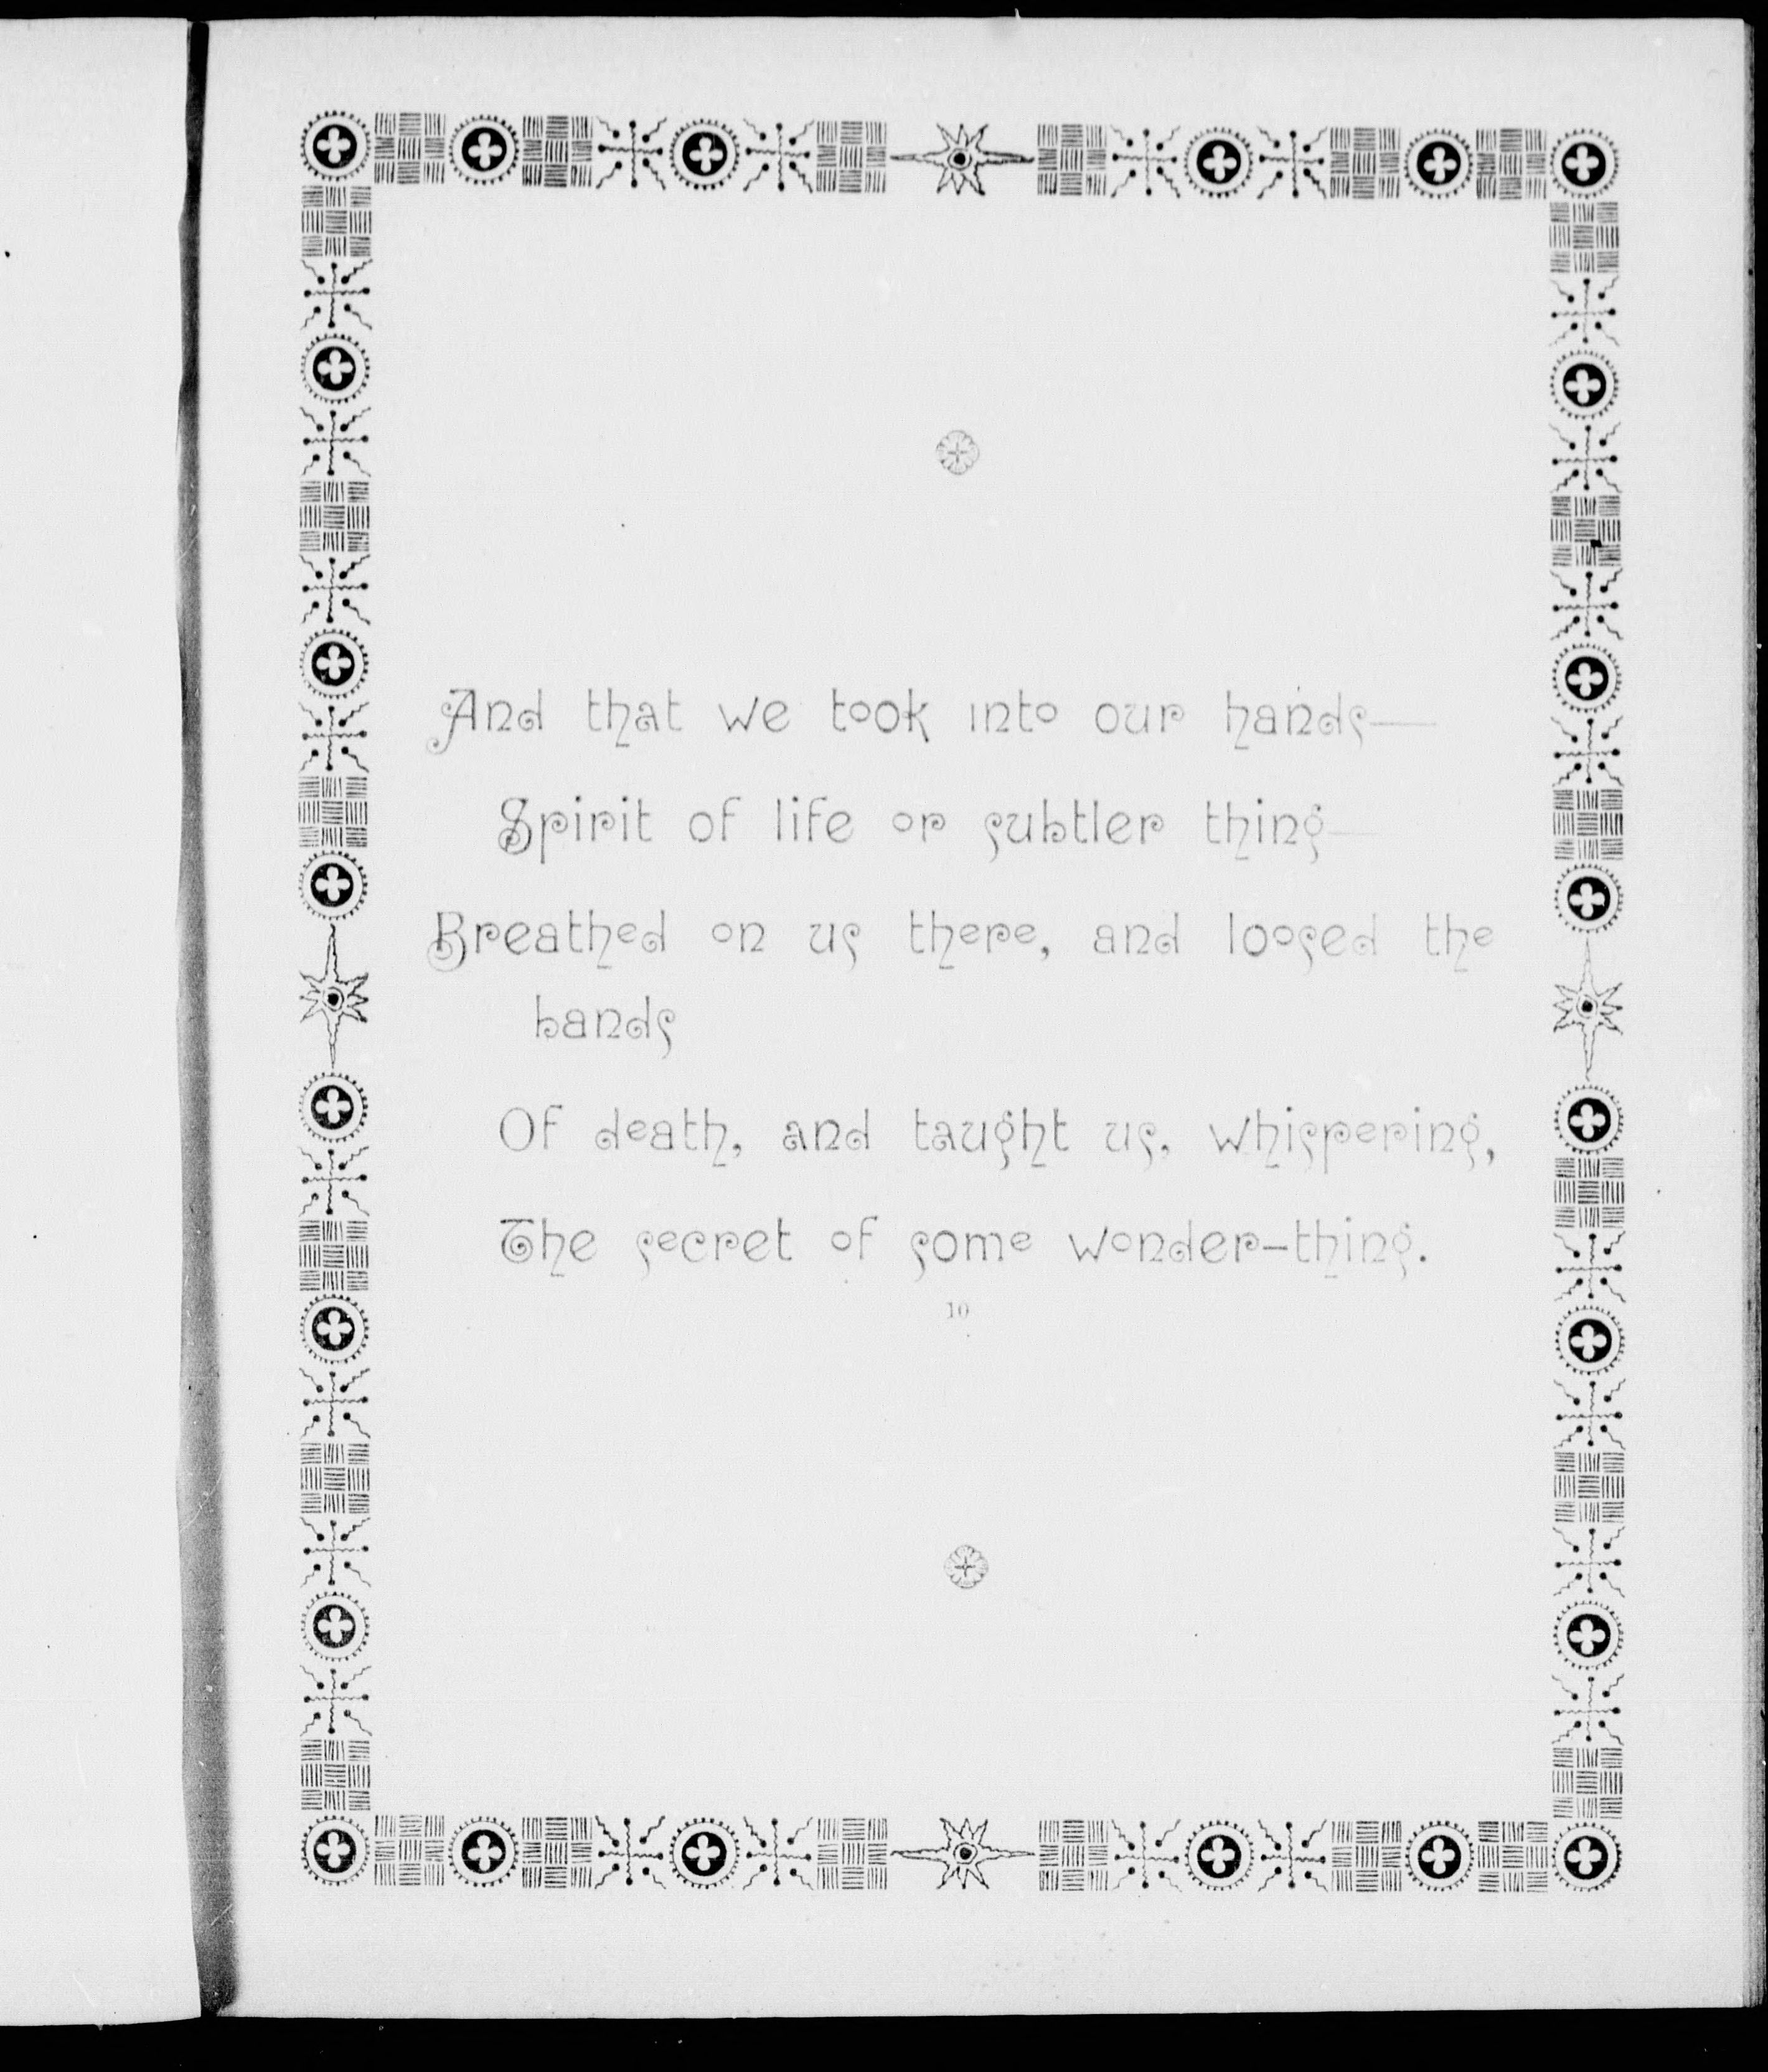 And that we took into our hands—
Spirit of life or subtler thing—
Breathed on us there, and loosed the
bands
Of death, and taught us, whispering,
The secret of some wonder-thing.
10